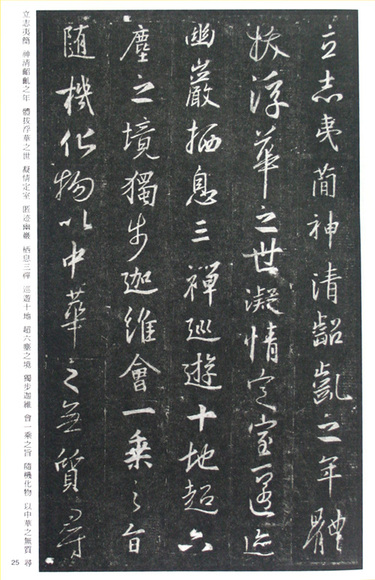 立志夷簡神清齠齔之年體
拔浮華之世凝情定室匿迹
幽巖栖息三禪巡遊十地超六
塵之境獨步迦維會一乘之旨
隨機化物以中華之無質尋
立志夷簡 神清齠齔之年 體拔浮華之世 凝情定室 匿迹幽巖 栖息三禪 巡遊十地 超六塵之境 獨步迦維 會一乘之旨 隨機化物 以中華之無質 尋
25